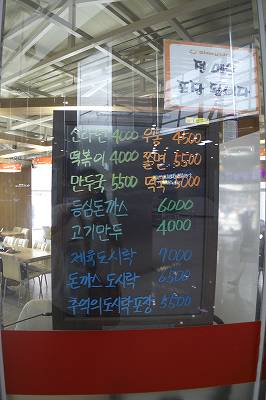 면 애는
포장 됩니다
신라면 4000 우동 4500
떡볶이 4000 쫄면 5500
만두국 5500 떡국 5000
등심돈까스 6000
고기만두 4000
제육도시락 7000
돈까스 도시락 6500
추억의도시락포장 5500